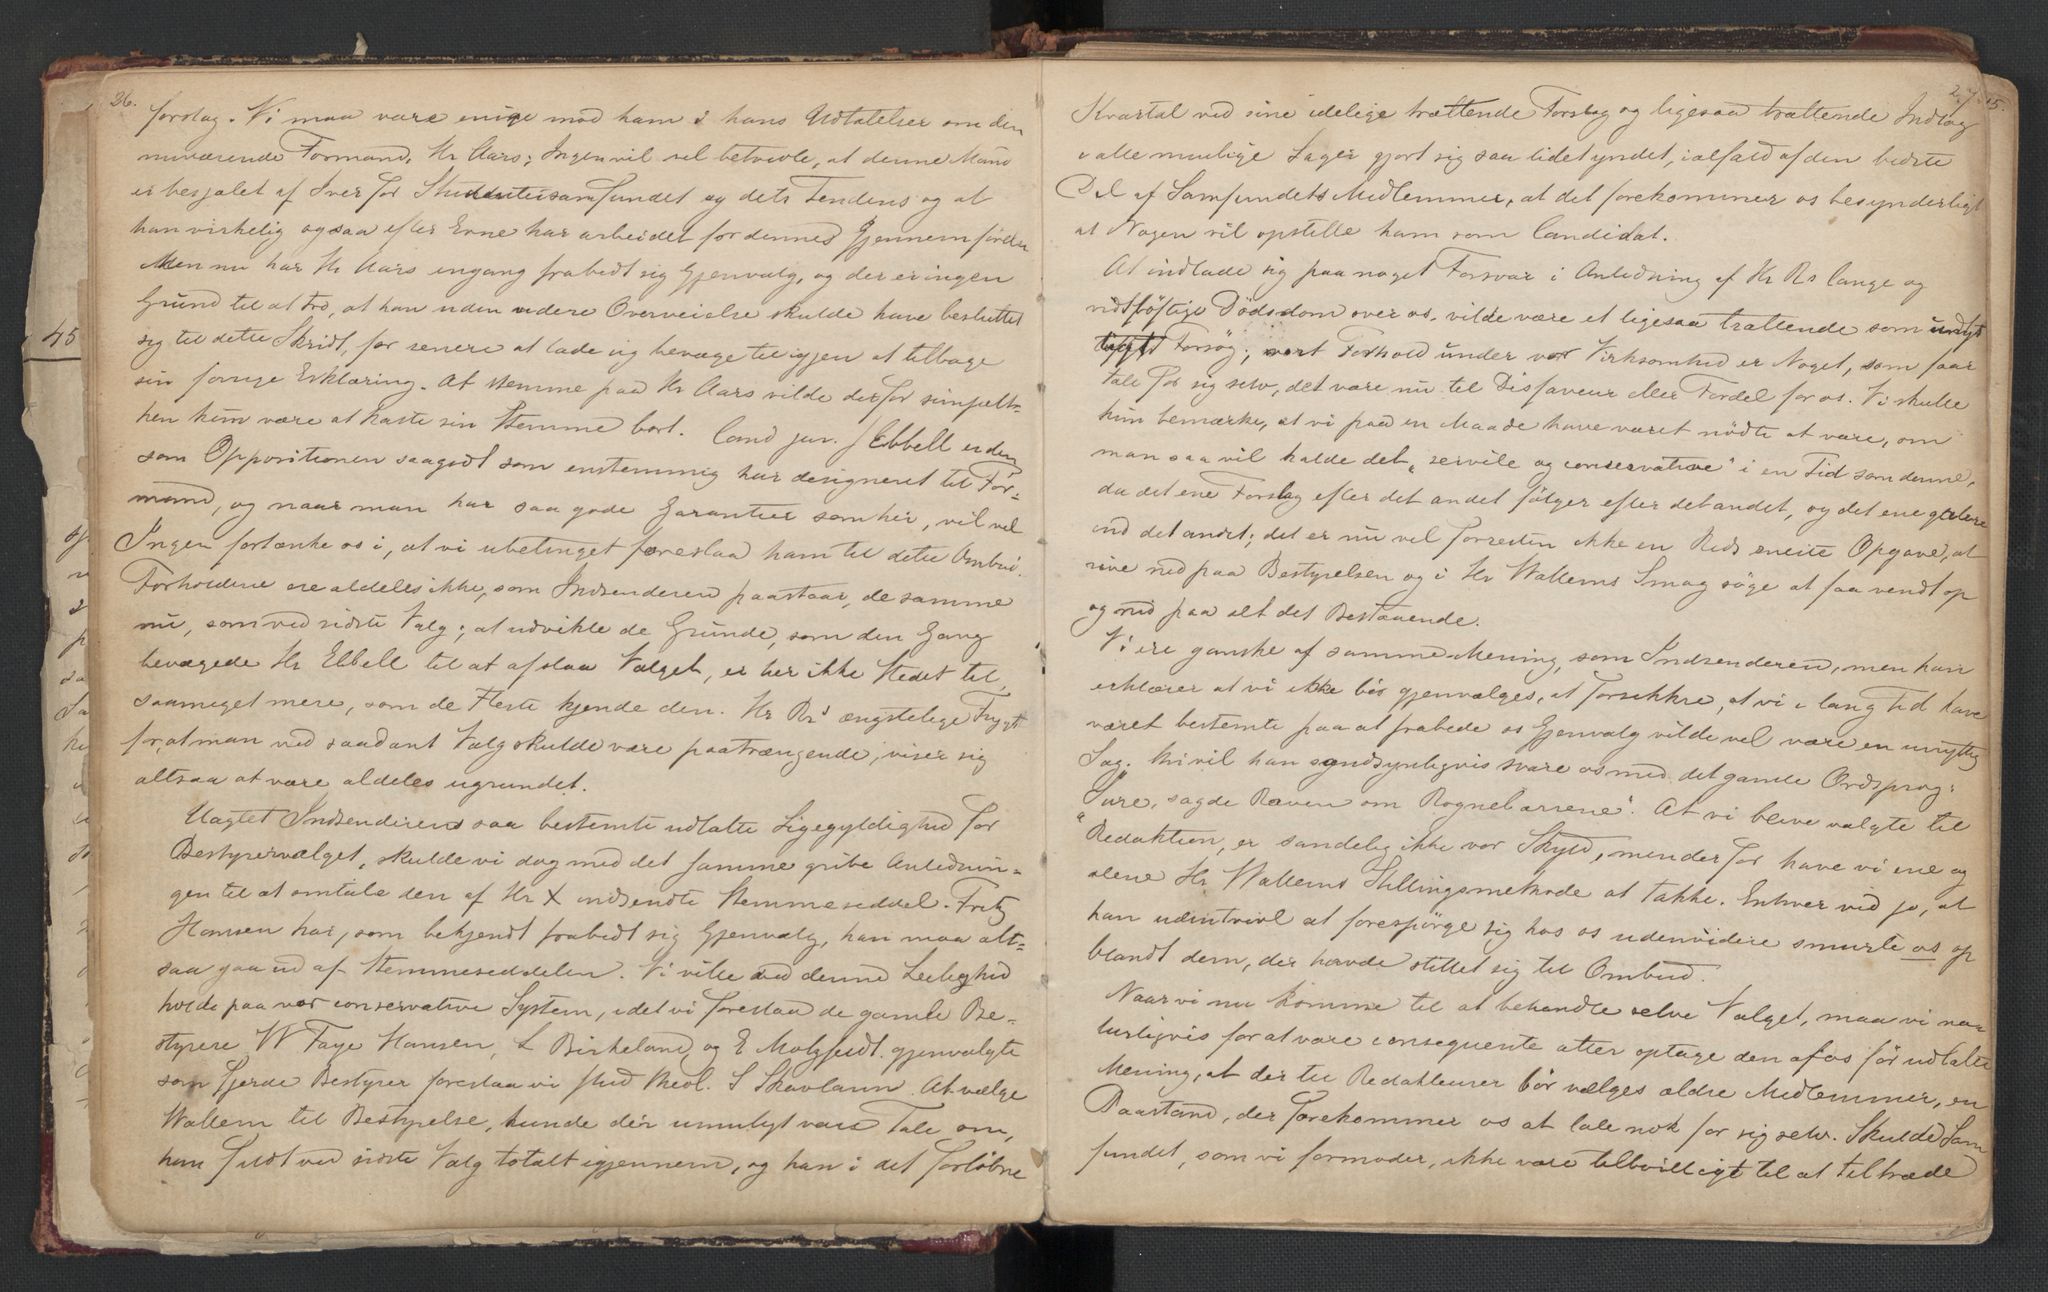 26.
forslag. Vi maa være enige med ham i hans Udtalelser om den
nuværende Formand, Hr Aars; Ingen vil vel betvivle, at denne Mand
er besjælet af Iver for Studentersamfundet og dets Tendens og at
han virkelig ogsaa efter Evne har arbeidet for dennes Gjennemførelse
Men nu har Hr Aars engang frabedt sig Gjenvalg, og der er ingen
Grund til at tro, at han uden videre Overveielse skulde have besluttet
sig til dette Skridt, for senere at lade sig bevæge til igjen at tilbage
sin forrige Erklæring. At stemme paa Hr Aars vilde derfor simpelt-
hen kun være at kaste sin Stemme bort. Cand jur. J Ebbell er den
som Oppositionen saagodt som enstemmig har designeret til For-
mand, og naar man har saa gode Garantier som her, vil vel
Ingen fortænke os i, at vi ubetinget foreslaa ham til dette Ombud.
Forholdene ere aldeles ikke, som Indsenderen paastaar, de samme
nu, som ved sidste Valg; at udvikle de Grunde, som den Gang
bevægede Hr Ebbell til at afslaa Valget, er her ikke Stedet til,
saameget mere, som de Fleste kjende den. Hr Rs ængstelige Frygt
for, at man ved saadant Valg skulde være paatrængende, viser sig
altsaa at være aldeles ugrundet.
Uagtet Indsenderens saa bestemte udtalte Ligegyldighed for
Bestyrervalget, skulde vi dog med det samme gribe Anlednin-
gen til at omtale den af Hr X indsendte Stemmeseddel. Fritz
Hansen har, som bekjendt frabedt sig Gjenvalg, han maa alt-
saa gaa ud af Stemmeseddelen. Vi ville ved denne Leilighed
holde paa vor conservative System, idet vi foreslaa de gamle Be-
styrere W Faye Hansen, L Birkeland og E Motzfeldt gjenvalgte
som fjerde Bestyrer foreslaa vi stud med. S Skavlann. At vælge
Wallem til Bestyrelse, kunde der umuligt være Tale om,
han faldt ved sidste Valg totalt igjennem, og han i det forløbne
27.
Kvartal ved sine idelige trættende Forslag og ligesaa trættende Indlæg
i alle mulige Sager gjort sig saa lidet yndet, ialfald af den bedste
Del af Samfundets Medlemmer, at det forekommer os besynderligt
at Nogen vil opstille ham som Candidat.
At indlade sig paa noget Forsvar i Anledning af Hr Rs lange og
vidtløftige Dødsdom over os, vilde være et ligesaa trættende som unyt
tigt Forsøg; vort Forhold under vor Virksomhed er Noget, som faar
tale for sig selv, det være nu til Disfaveur eller Fordel for os. Vi skulle
kun bemærke, at vi paa en Maade have været nødte at være, om
man saa vil kalde det, "servile og conservative" i en Tid som denne,
da det ene Forslag efter det andet følger efter det andet, og det ene galere
end det andet; det er nu vel forresten ikke en Reds eneste Opgave, at
rive ned paa Bestyrelsen og i Hr Wallems Smag søge at faa vendt op
og ned paa alt det Bestaaende.
Vi ere ganske af samme Mening, som Indsenderen, men han
erklærer at vi ikke bør gjenvælges, at forsikkre, at vi i lang Tid have
været bestemte paa at frabede os Gjenvalg vilde vel være en unyttig
Sag. Thi vil han sandsynligvis svare os med det gamle Ordsprog:
"Sure, sagde Ræven om Rognebærrene". At vi bleve valgte til
Redaktion, er sandelig ikke vor Skyld, men derfor have vi ene og
alene Hr Wallems Stillingsmethode at takke. Enhver ved jo, at
han udentvivl at forespørge sig hos os udenvidere smurte os op
blandt dem, der havde stillet sig til Ombud.
Naar vi nu komme til at behandle selve Valget, maa vi na-
turligvis for at være consequente atter optage den af os før udtalte
Mening, at der til Redakteurer bør vælges ældre Medlemmer, en
Paastand, der forekommer os at tale nok for sig selv. Skulde Sam
fundet, som vi formoder, ikke være tilbøieligt til at tiltræde
45